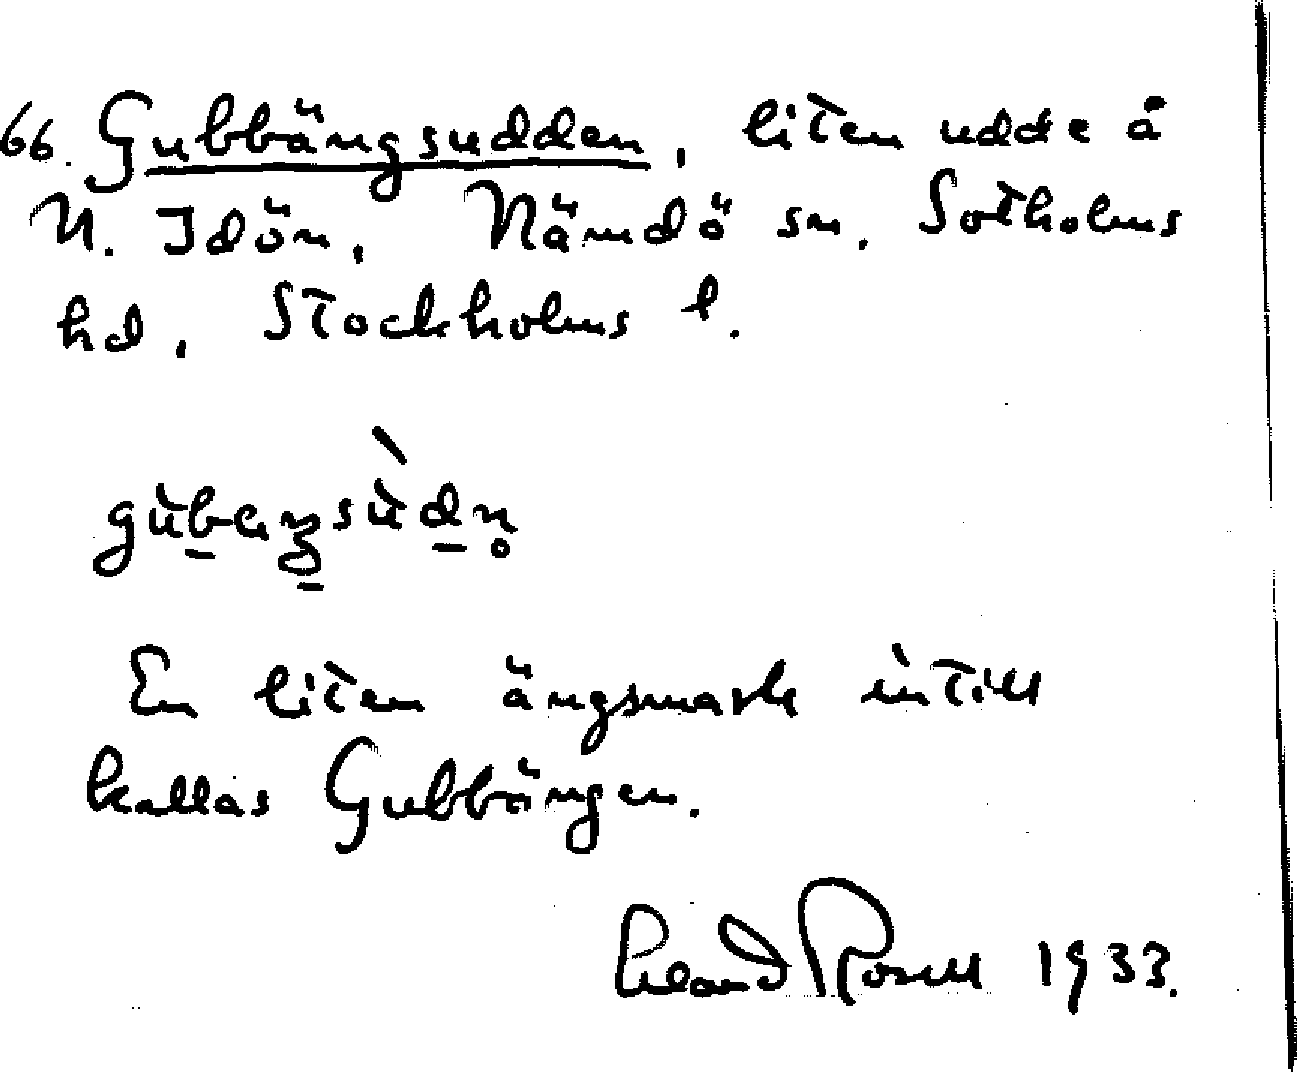 66. Gubbängsudden, liten udde å
N. Idön, Nämdö sn, Sotholms
hd, Stockholms l.
En liten ängsmark intill
kallas Gubbängen.
Erland Rosell 1933.